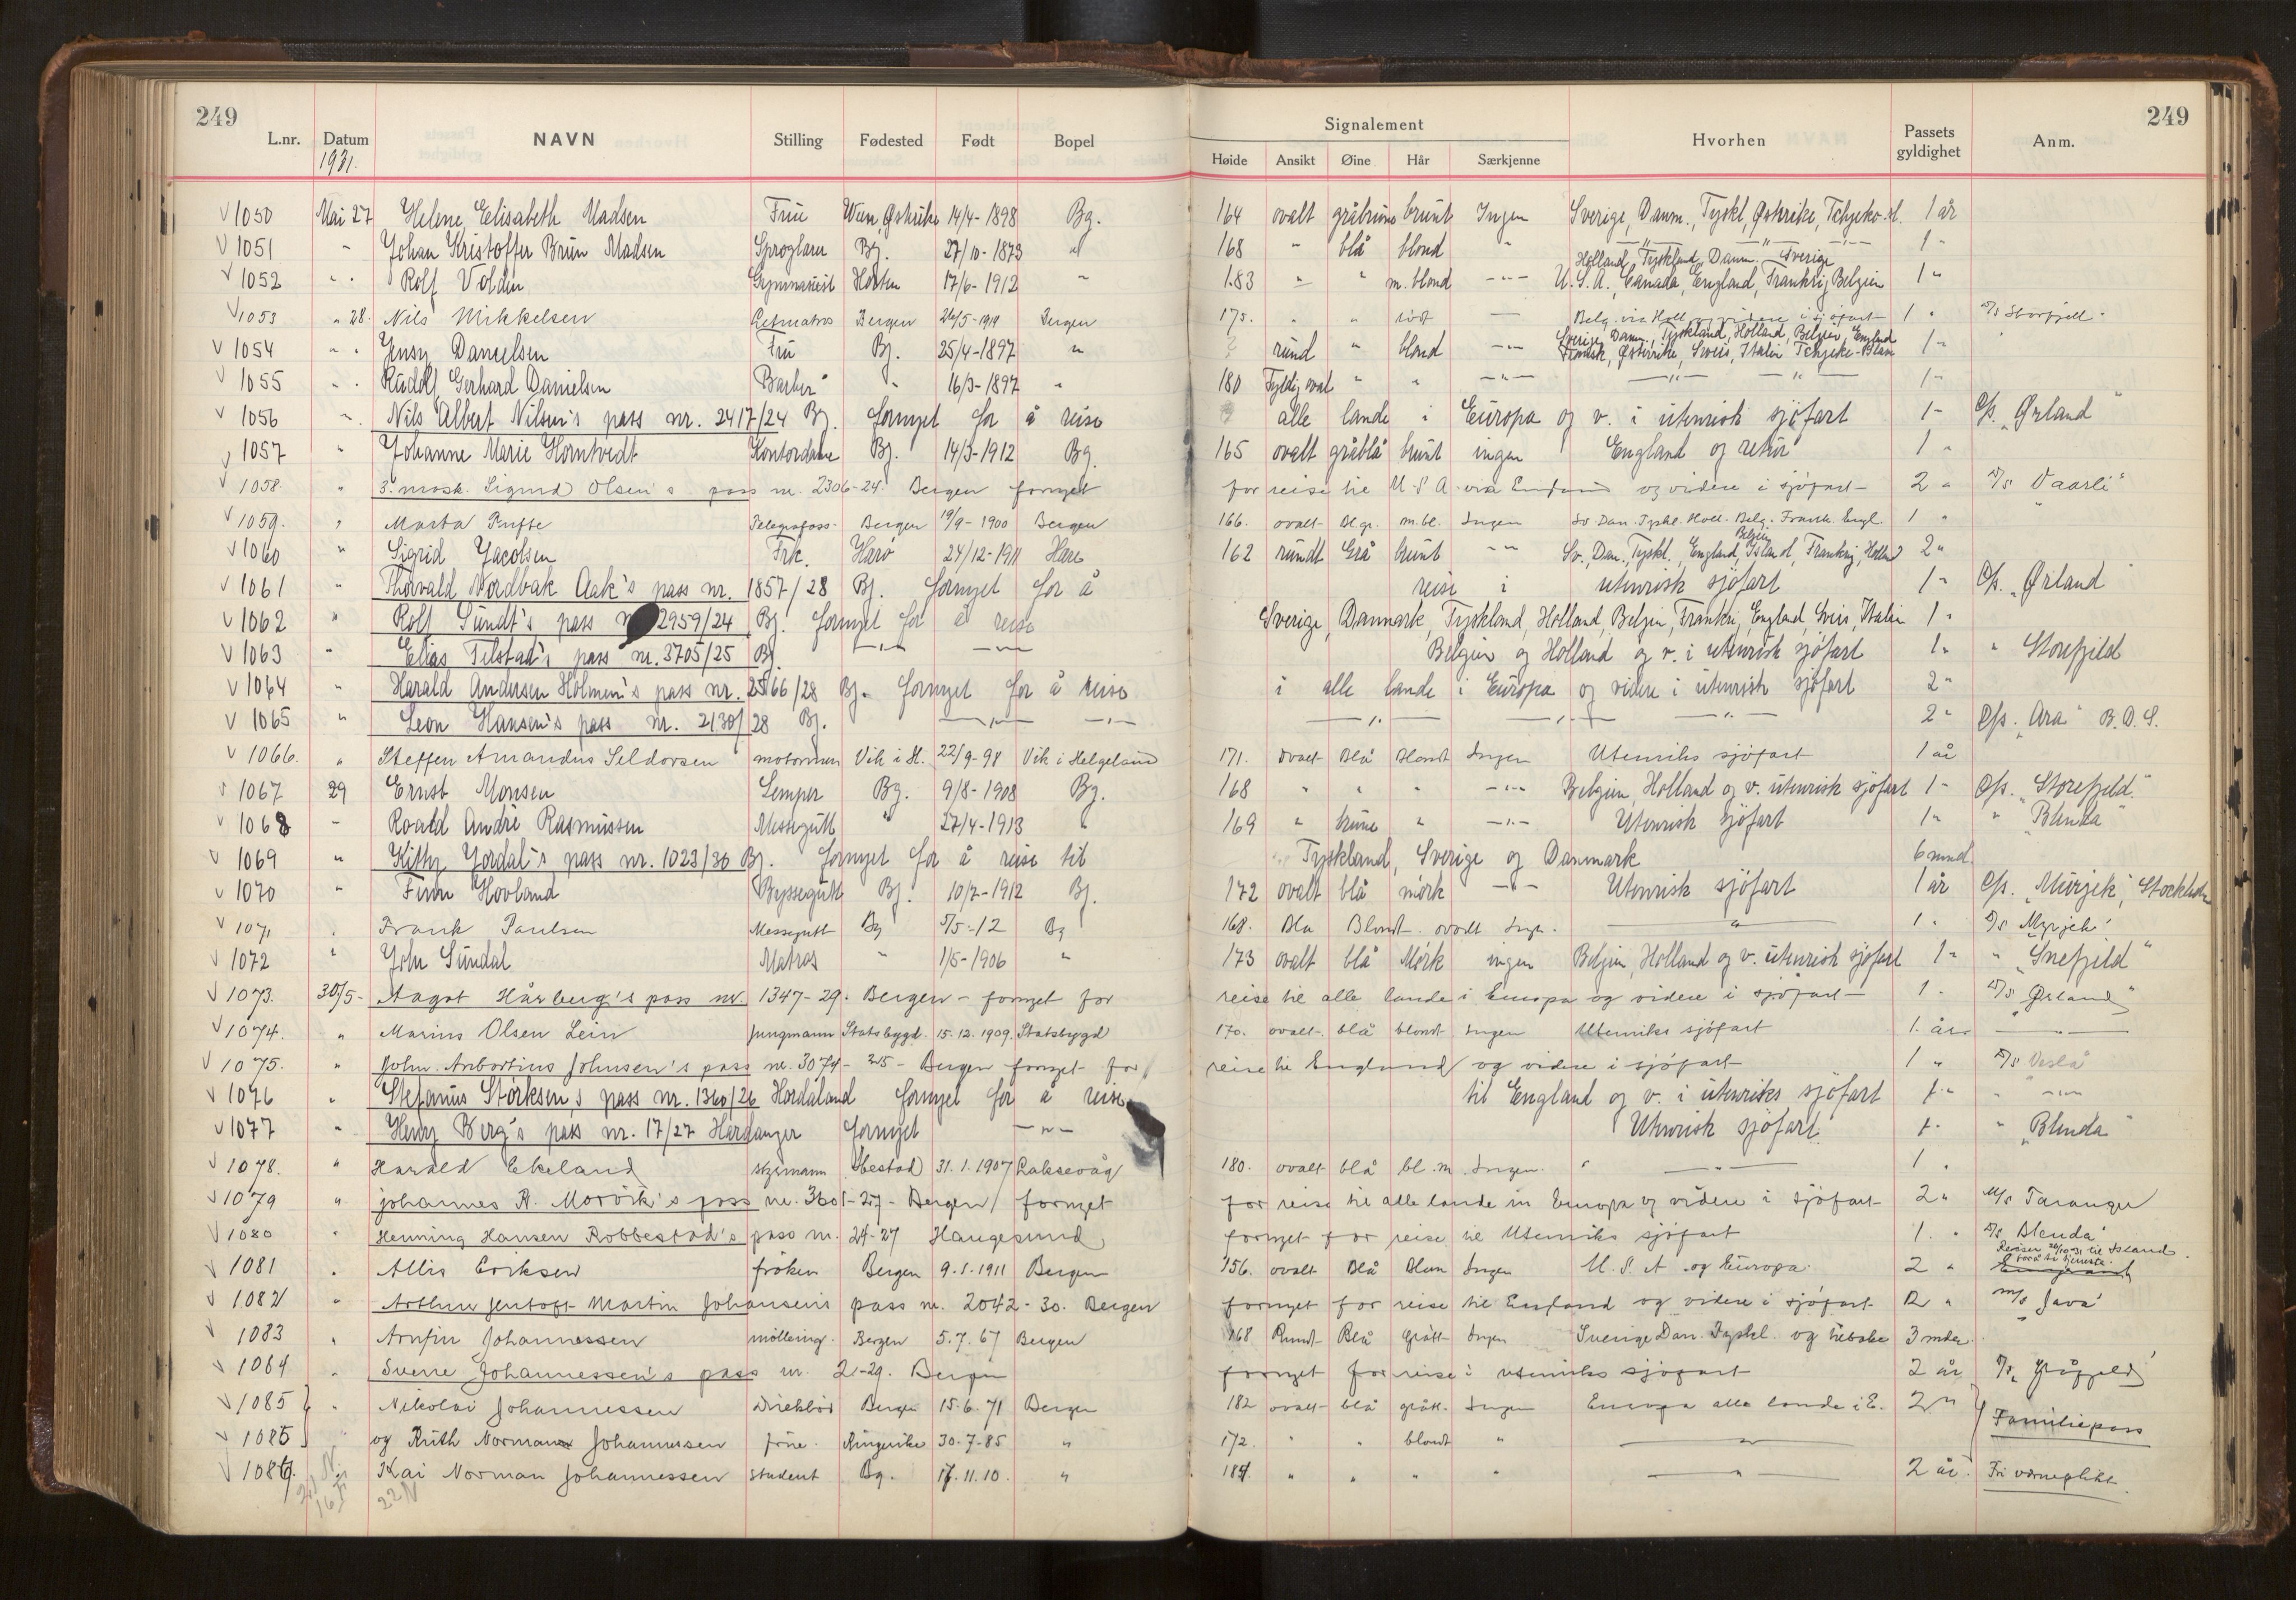 249 249
L.nr. Datum NAVN Stilling Fødested Født Bopel Signalement Hvorhen Passets gyldighet Anm.
1931. Høide Ansikt Øine Hår Særkjenne
1050 Mai 27 Helene Elisabeth Madsen Frue Wien, Østrike 14/4-1898 Bg. 164 ovalt gråbrune brunt Ingen Sverige, Danm., Tyskl, Østrike, Tchjeko-sl. 1 år
1051 " Johan Kristoffer Brun Madsen Sproglærer Bg. 27/10-1873 " 168 " blå blond " —"— —"— —"— 1 "
Holland, Tyskland, Danm. Sverige
1052 " " Rolf Volden Gymnasiast Horten 17/6-1912 " 183 " " m. blond —"— U.S.A., Canada, England, Frankrig Belgien 1 "
1053 " 28. Nils Mikkelsen Letmatros Bergen 26/5-1911 Bergen 175. " " rödt — Belg. via Holl. og videre i sjöfart 1 " D/S Storfjell.
Sverige, Danm., Tyskland, Holland, Belgien, England
1054 " " Jensy Danielsen Fru Bg. 25/4-1897 " rund " blond —"— Fransk, Østerrike, Sveis, Italien Tchjeko-Slav 1 "
1055 " " Rudolf Gerhard Danielsen Barber " 16/3-1897 " 180 Fyldig oval " " —"— —"— —"— 1 "
1056 " Nils Albert Nilsen's pass nr. 2417/24 Bg. fornyet for å reise alle lande i Europa og v. i utenrisk sjöfart 1 " D/s. "Ørland"
1057 " Johanne Marie Horntvedt Kontordame Bg. 14/3-1912 Bg. 165 ovalt gråblå brunt ingen England og retur 1 "
1058. " 3. mask. Sigurd Olsen's pass nr. 2306-24. Bergen fornyet for reise til U.S.A. via England og videre i sjöfart 2 " D/S "Vaarli"
1059. " Marta Tufte Telegrafass. Bergen 19/9-1900 Bergen 166. ovalt Bl.gr. m.bl. Ingen Sv. Dan. Tyskl. Holl. Belg. Frank. Engl. 1 "
Belgien
1060 " Sigrid Jacobsen Frk. Harö 24/12-1911 Harö 162 rundt Grå brunt —"— Sv., Dan., Tyskl., England, Island, Frankrig, Holland 2 "
1061 " Thorvald Nordbak Aak's pass nr. 1857/28 Bg. fornyet for å reise i utenrisk sjöfart 1 " D/s. "Ørland"
1062 " Rolf Sundt's pass 2959/24 Bg. fornyet for å reise Sverige, Danmark, Tyskland, Holland, Belgien, Frankri, England, Sveis, Italien 1 "
1063 " Elias Tilstad's pass nr. 3705/25 Bg. —"— —"— Belgien og Holland og v. i utenrisk sjöfart 1 " " Storefjeld
1064 " Harald Andersen Holmen's pass nr. 2566/28 Bg. fornyet for å reise i alle lande i Europa og videre i utenrisk sjöfart 2 "
1065 " Leon Hansen's pass nr. 2130/28 Bg. —"— —"— —"— —"— —"— 2 " D/s. "Ara" B.D.S.
1066. " Steffen Amandus Seldorsen motormann Vik i H. 22/9-98 Vik i Helgeland 171. ovalt Blå Blondt Ingen Utenriks sjöfart 1 år
1067 29 Ernst Monsen Lemper Bg. 9/8-1908 Bg. 168 " " " —"— Belgien, Holland og v. utenrisk sjöfart 1 " D/s. "Storefjeld."
1068 " Roald André Rasmussen Messegutt " 27/4-1913 " 169 " brune " —"— Utenrisk sjöfart 1 " " "Blenda"
1069 " Kitty Jordal's pass nr. 1023/30 Bg. fornyet for å reise til Tyskland, Sverige og Danmark 6 mnd.
1070 " Finn Hovland Byssegutt Bg. 10/7-1912 Bg. 172 ovalt blå mörk —"— Utenrisk sjöfart 1 år D/s. "Murjek", Stockholm
1071 " Frank Paulsen Messegutt Bg 5/5-12 Bg 168. Blå Blondt ovalt Ing. —"— 1 " D/S "Myrjek"
1072 " John Sundal Matros " 1/5-1906 " 173 ovalt blå Mörk ingen Belgien, Holland og v. utenrisk sjöfart 1 " " "Snefjeld"
1073. 30/5- Aagot Hårberg's pass nr 1347-29. Bergen - fornyet for reise til alle lande i Europa og videre i sjöfart 1 " D/S "Ørland"
1074. " Marius Olsen Lein Jungmann Statsbygd. 15.12.1909. Statsbygd 170. ovalt blå blondt Ingen Utenriks sjöfart 1. år —"—
1075. " John Anbortius Johnsen's pass nr. 3074-25- Bergen fornyet for reise til England og videre i sjöfart 1 " D/S Veslå
1076 " Stefanus Störksen's pass nr. 1360/26 Hordaland fornyet for å reise til England og v. i utenriks sjöfart 1 " " —"—
1077 " Henry Berg's pass nr. 17/27 Hardanger fornyet —"— Utenrisk sjöfart 1 " " "Blenda"
1078. " Harald Ekeland styrmann Ibestad 31.1.1907 Laksevåg 180. ovalt blå bl.m. Ingen. —"— 1 "
1079 " Johannes R. Morvik's pass nr. 3601-27- Bergen fornyet for reise til alle lande in Europa og videre i sjöfart 2 " M/S Taranger
1080 " Henning Hansen Robbestad's pass nr. 24-27 Haugesund fornyet for reise til Utenriks sjöfart 1. " D/S Blenda"
Reiser 26/10-31 til Island.
1081 " Allis Eriksen fröken Bergen 9.1.1911 Bergen 156. ovalt Blå Blon Ingen U.S.A og Europa. 2 "
1082 " Arthur Jentoft Martin Johansens pass nr. 2042-30. Bergen fornyet for reise til England og videre i sjöfart 2 " M/S "Java"
1083 " Arnfin Johannessen möllering. Bergen 5.7.67 Bergen 168 Rundt Blå grått Ingen Sverige Dan. Tyskl. og tilbake 3 mdr.
1084 " Sverre Johannessen's pass nr. 2-29. Bergen fornyet for reise i utenriks sjöfart 2 år D/S. "Gråfjeld"
1085 " Nikolai Johannessen Direktör Bergen 15.6.71 Bergen 182 ovalt blå grått. Ingen Europa alle lande i E. 2 "
Familiepass
1085 og Ruth Norman Johannessen frue. Ringerike 30-7-85 " 172. " " blondt " —"—
1086. Kai Norman Johannessen student Bg. 17.11.10. " 184. " " " " —"— 2 år. Fri værneplikt.
22 N